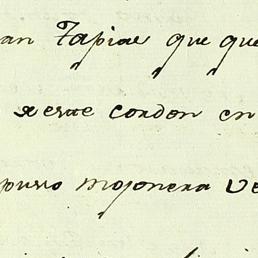 an Tapiae que que
este cordon en
puso mojonera Ve